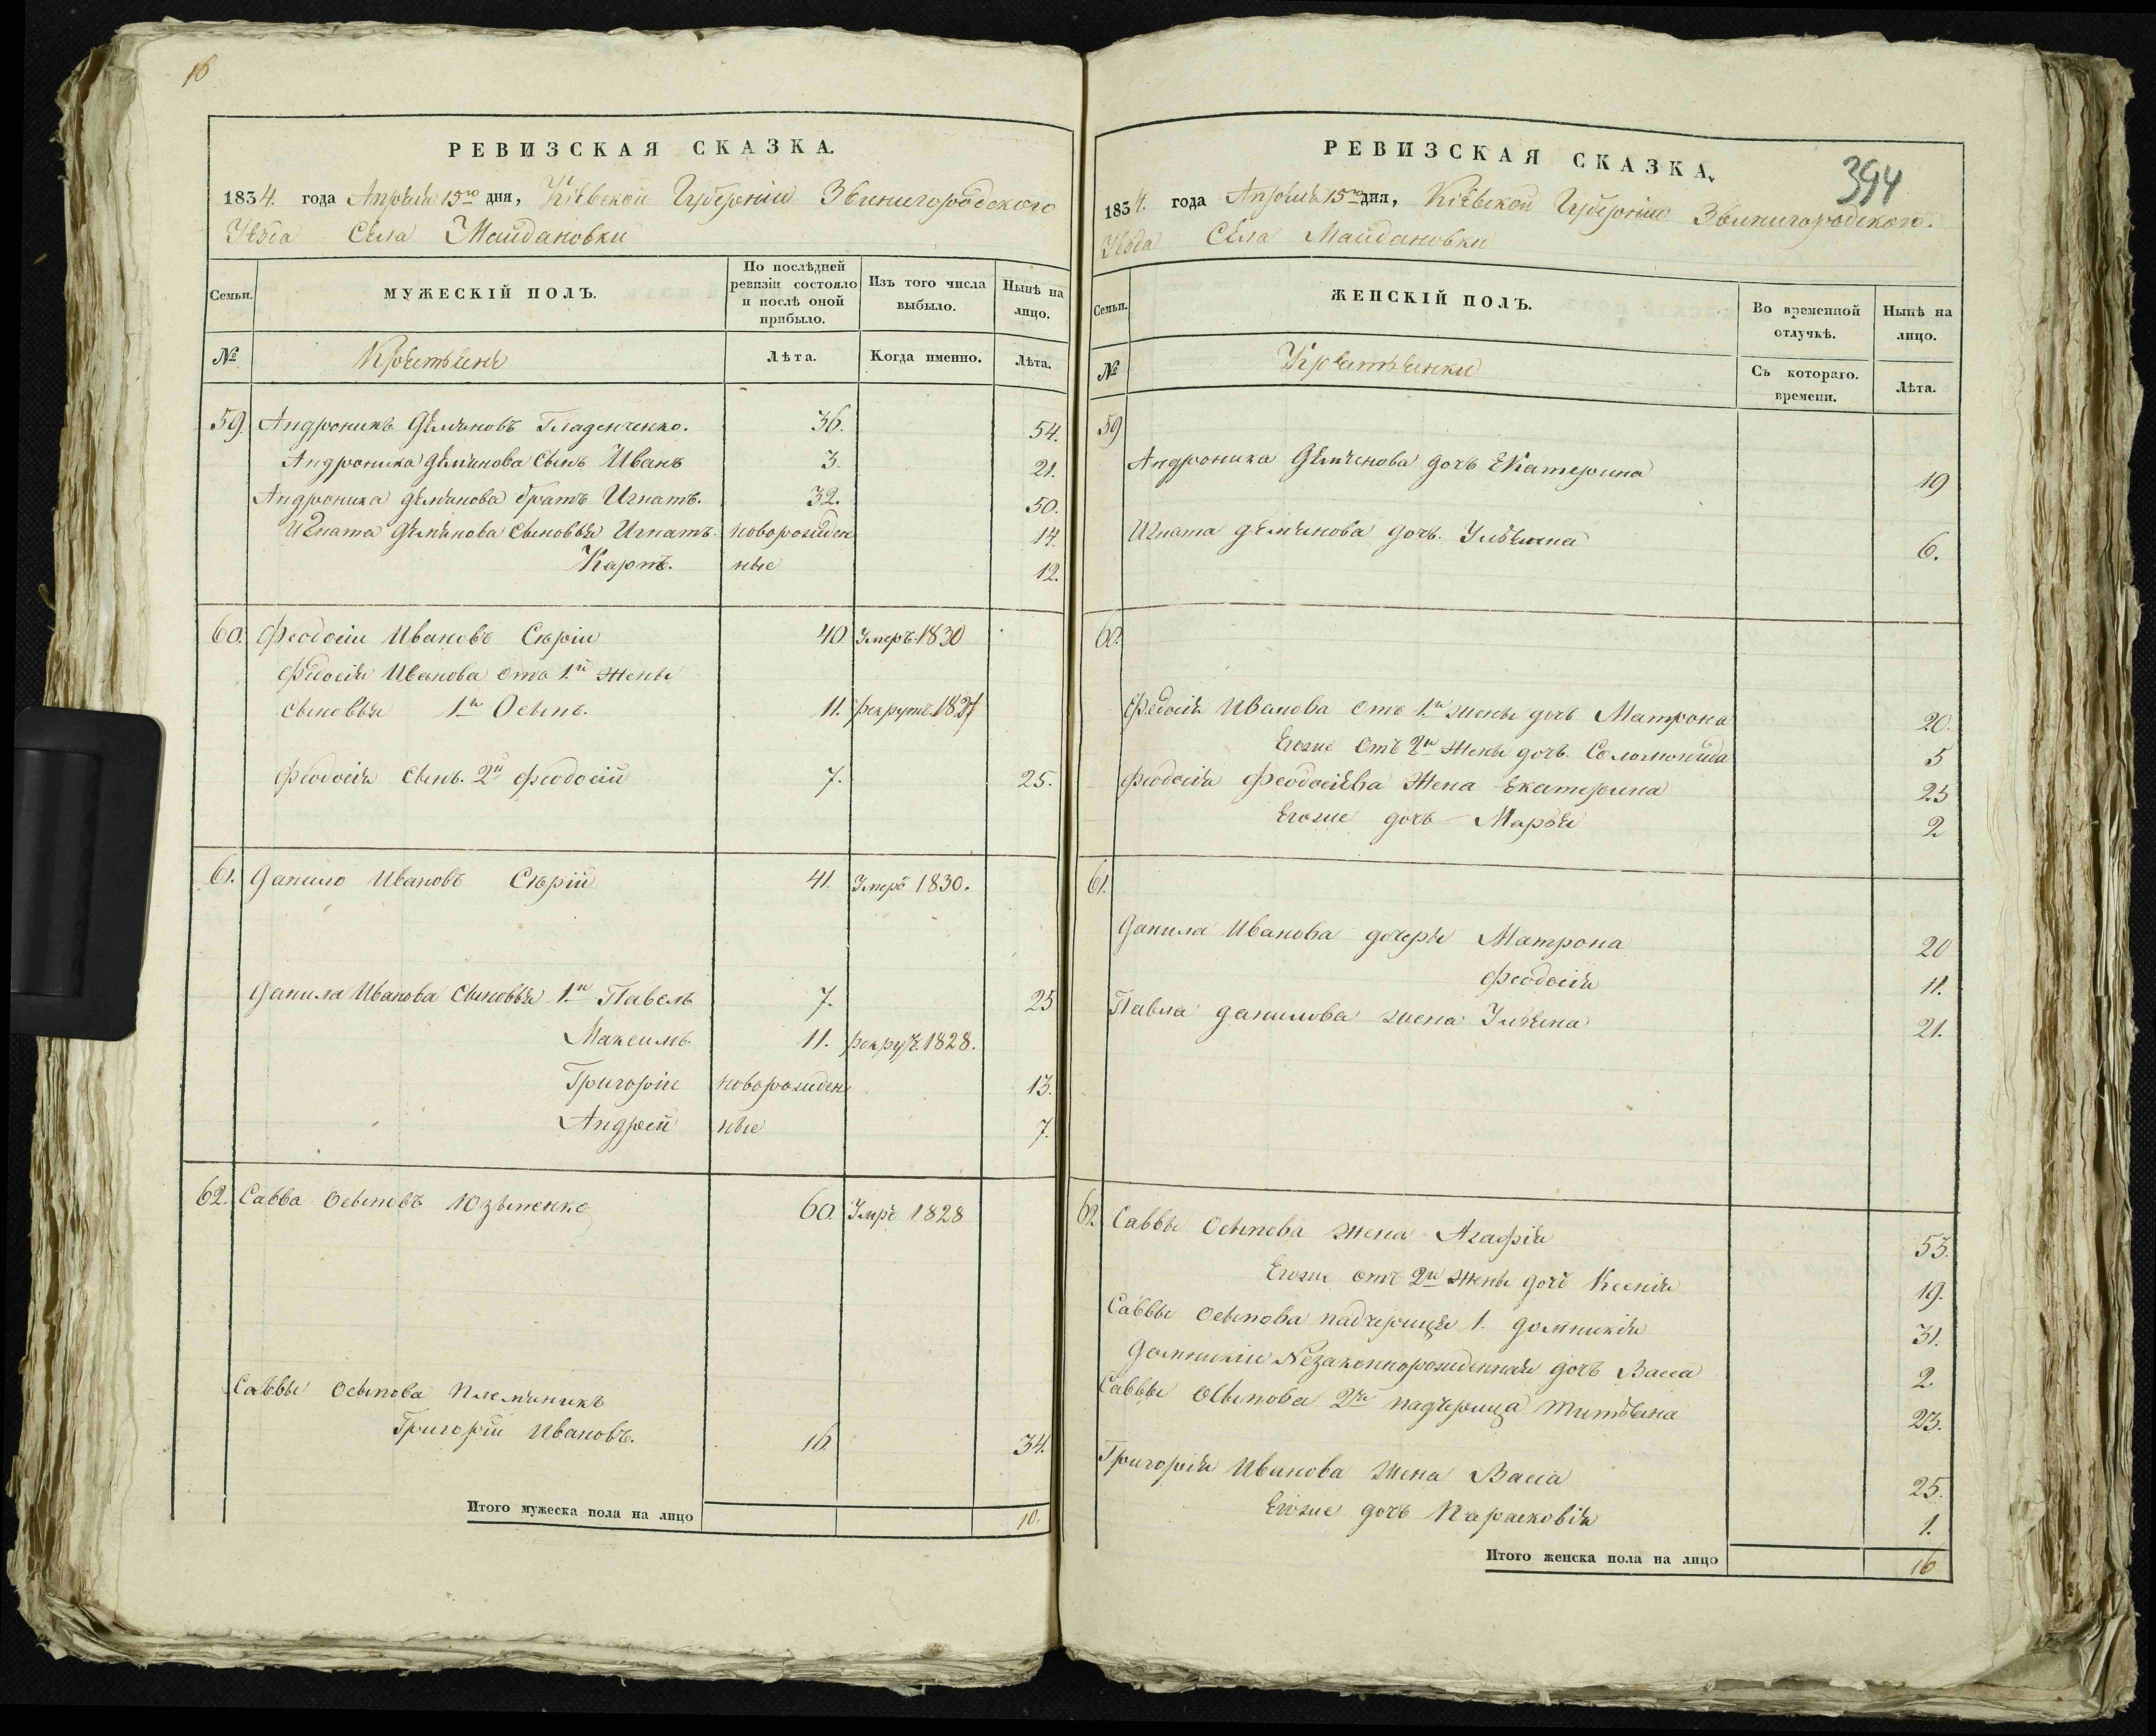 16
РЕВИЗСКАЯ СКАЗКА.
1834. года Апрѣля 15го дня, Кіевской Губерніи Звенигородского
Уѣзда Села Майдановки
Семьи.
МУЖЕСКІЙ ПОЛЪ.
По послѣдней ревизіи состояло и послѣ оной прибыло.
Изъ того числа выбыло.
Нынѣ на лицо.
№ Крестьяне Лѣта. Когда именно. Лѣта.
59. Андроникъ Демьяновъ Гладенченко. 36. 54.
Андроника Демьянова Сынъ Иванъ 3. 21.
Андроника Демьянова братъ Игнатъ. 32. 50.
Игната Демьянова Сыновья Игнатъ. новорожден 14.
Карпъ. ные 12.
60. Феодосій Ивановъ Сѣрій 40 Умеръ 1830
Федосія Иванова отъ 1й жены
сыновья 1й Осипъ. 11. рекрутъ 1827
Феодосія сынъ. 2й Феодосій 7. 25.
61. Данило Ивановъ Сѣрій 41. Умеръ 1830.
Данила Иванова Сыновья 1й Павелъ 7. 25
Максимъ. 11. рекрут. 1828.
Григорій новорожден 13.
Андрей ные 7.
62. Савва Осиповъ 60. Умре 1828
Саввы Осипова Племяникъ
Григорій Ивановъ. 16. 34.
Итого мужеска пола на лицо 10.
РЕВИЗСКАЯ СКАЗКА.
394
1834. года Апрѣля 15го дня, Кіевской Губерніи Звенигородского.
Уѣзда Села Майдановки
Семьи.
ЖЕНСКІЙ ПОЛЪ.
Во временной отлучкѣ.
Нынѣ на лицо.
№ Крестьянки Съ котораго. времени. Лѣта.
59
Андроника Демьянова дочь Екатерина 19
Игната Демьянова дочь. Ульяна 6.
60.
Федосія Иванова отъ 1й жены дочь Матрона 20.
Егоже отъ 2й жены дочь. Соломонида 5
Феодосія Феодосіева жена Екатерина 25
Егоже дочь Марья 2
61.
Данила Иванова дочери Матрона 20
Феодосія 11.
Павла Данилова жена Ульяна 21.
62. Саввы Осипова жена Агафія 53.
Егоже отъ 2й жены дочь Ксенія 19.
Саввы Осипова падчерицы 1. Домникія 31.
Домникіи Незаконнорожденная дочь Васса 2
Саввы Осипова 2я падчерица Титьяна 23.
Григорія Иванова жена Васса 25.
Егоже дочь Парасковія 1.
Итого женска пола на лицо 16